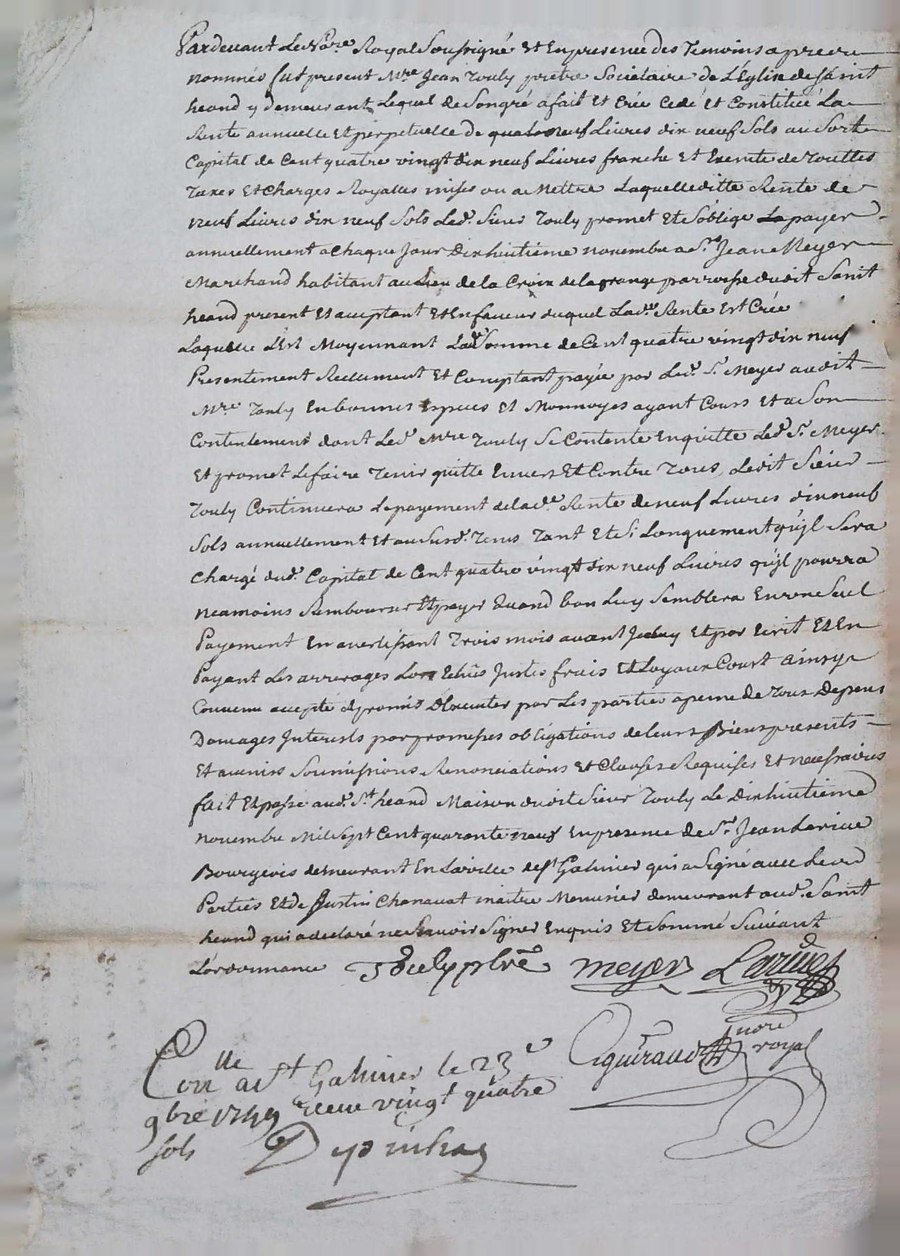 Pardevant Le No.re Royal Soussigné Et En presence des Temoins apres
nommés fut present M.re Jean Jouly pretre Societaire de L'Eglise de Saint
heand y demeurant Lequel de Son gré a fait Et Créé Cedé et Constitué La
Rente annuelle Et perpetuelle de neuf Livres dix neuf Sols au Sort
Capital de Cent quatre vingt dix neuf Livres franche Et Exemte de Touttes
Taxes Et Charges Royalles mises ou a Mettre Laquelle ditte Rente de
neuf Livres dix neuf Sols Led. Sieur Jouly promet Et S'oblige La payer
annuellement a Chaque Jour Dixhuitieme novembre a S.r Jean Meyer
Marchand habitant au Lieu de la Croix de la grange parroisse dudit Saint
heand present Et acceptant Et En faveur duquel Lad.e Rente Est Créé
Laquelle L'Est Moyennant La Somme de Cent quatre vingt dix neuf
Presentement Reelement Et Comptant payée par Led. S.r Meyer audit
M.re Jouly En bonnes Especes Et Monnoyes ayant Cours Et a Son
Contentement dont Led. M.re Jouly Se Contente En quitte Led. S.r Meyer
Et promet Le faire Tenir quitte Envers Et Contre Tous, Ledit Sieur
Jouly Continuera Le payement de lad.e Rente de neuf Livres dix neuf
Sols annuellement Et au Susd. Tems Tant Et Si Longuement qu'jl Sera
Chargé dud. Capital de Cent quatre vingt dix neuf Livres qu'jl pourra
neamoins Rembourser Et payer Quand bon Luy Semblera En un Seul
Payement En avertissant Trois mois avant Et par Ecrit Et En
Payant Les arrerages Lors Echus Justes frais Et Loyaux Court ainsy
Convenu accepté Et promis D'Executer par Les parties a peine de Tous Depens
Domages Interests par promesses obligations de leurs Biens presents
Et avenirs Soumissions Renonciations Et Clauses Requises Et necessaires
fait Et passé aud. S.t heand Maison dudit Sieur Jouly Le Dixhuitieme
novembre Mil Sept Cent quarante neuf En presence de S.r Jean Larive
Bourgeois demeurant En La ville de S.t Galmier qui a Signé avec Lesd.
Parties Et de Justin Chanavat maitre Menusier demeurant aud. Saint
heand qui a declaré ne Scavoir Signer Enquis Et Sommé Suivant
L'ordonnance Jouly pbre Meyer Larive
Ciguiraud no.re royal
Con.lle a S.t Galmier le 23.e
9bre 1749 Receu vingt quatre
sols